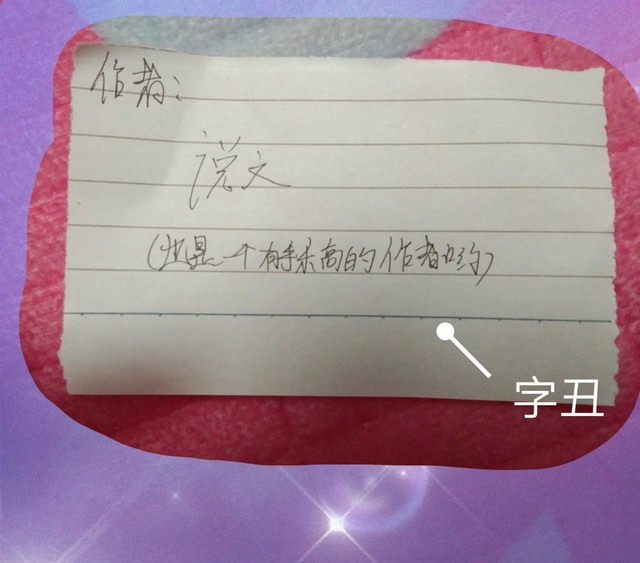 作者：
说文
（也是一个有手术高的作者哟）
字丑